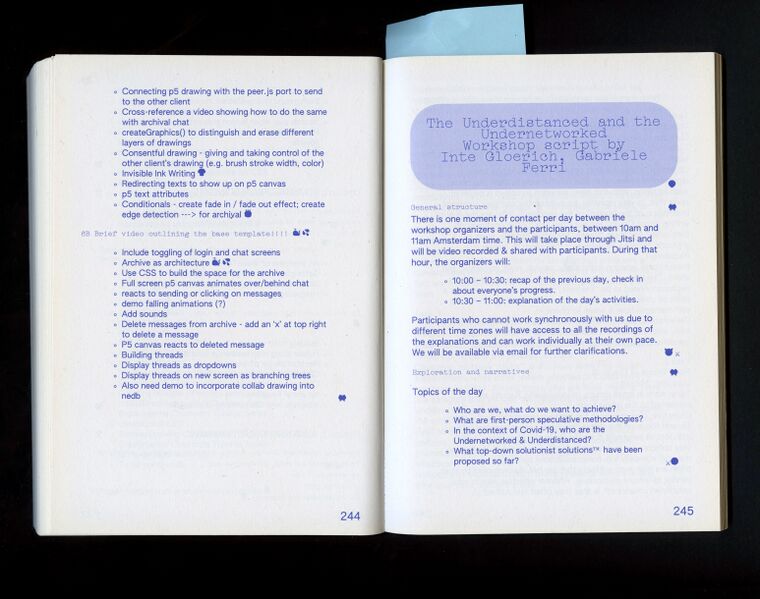 Connecting p5 drawing with the peer.js port to send
to the other client
Cross-reference a video showing how to do the same
with archival chat
createGraphics() to distinguish and erase different
layers of drawings
Consentful drawing - giving and taking control of the
other client's drawing (e.g. brush stroke width, color)
Invisible Ink Writing
Redirecting texts to show up on p5 canvas
p5 text attributes
Conditionals - create fade in / fade out effect; create
edge detection ---> for archival
6B Brief video outlining the base template!!!!
Include toggling of login and chat screens
Archive as architecture
Use CSS to build the space for the archive
Full screen p5 canvas animates over/behind chat
reacts to sending or clicking on messages
demo falling animations (?)
Add sounds
Delete messages from archive - add an 'x' at top right
to delete a message
P5 canvas reacts to deleted message
Building threads
Display threads as dropdowns
Display threads on new screen as branching trees
Also need demo to incorporate collab drawing into
nedb
244
The Underdistanced and the
Undernetworked
Workshop script by
Inte Gloerich, Gabriele
Ferri
General structure
There is one moment of contact per day between the
workshop organizers and the participants, between 10am and
11am Amsterdam time. This will take place through Jitsi and
will be video recorded & shared with participants. During that
hour, the organizers will:
10:00 – 10:30: recap of the previous day, check in
about everyone's progress.
10:30 – 11:00: explanation of the day's activities.
Participants who cannot work synchronously with us due to
different time zones will have access to all the recordings of
the explanations and can work individually at their own pace.
We will be available via email for further clarifications.
Exploration and narratives
Topics of the day
Who are we, what do we want to achieve?
What are first-person speculative methodologies?
In the context of Covid-19, who are the
Undernetworked & Underdistanced?
What top-down solutionist solutions™ have been
proposed so far?
245